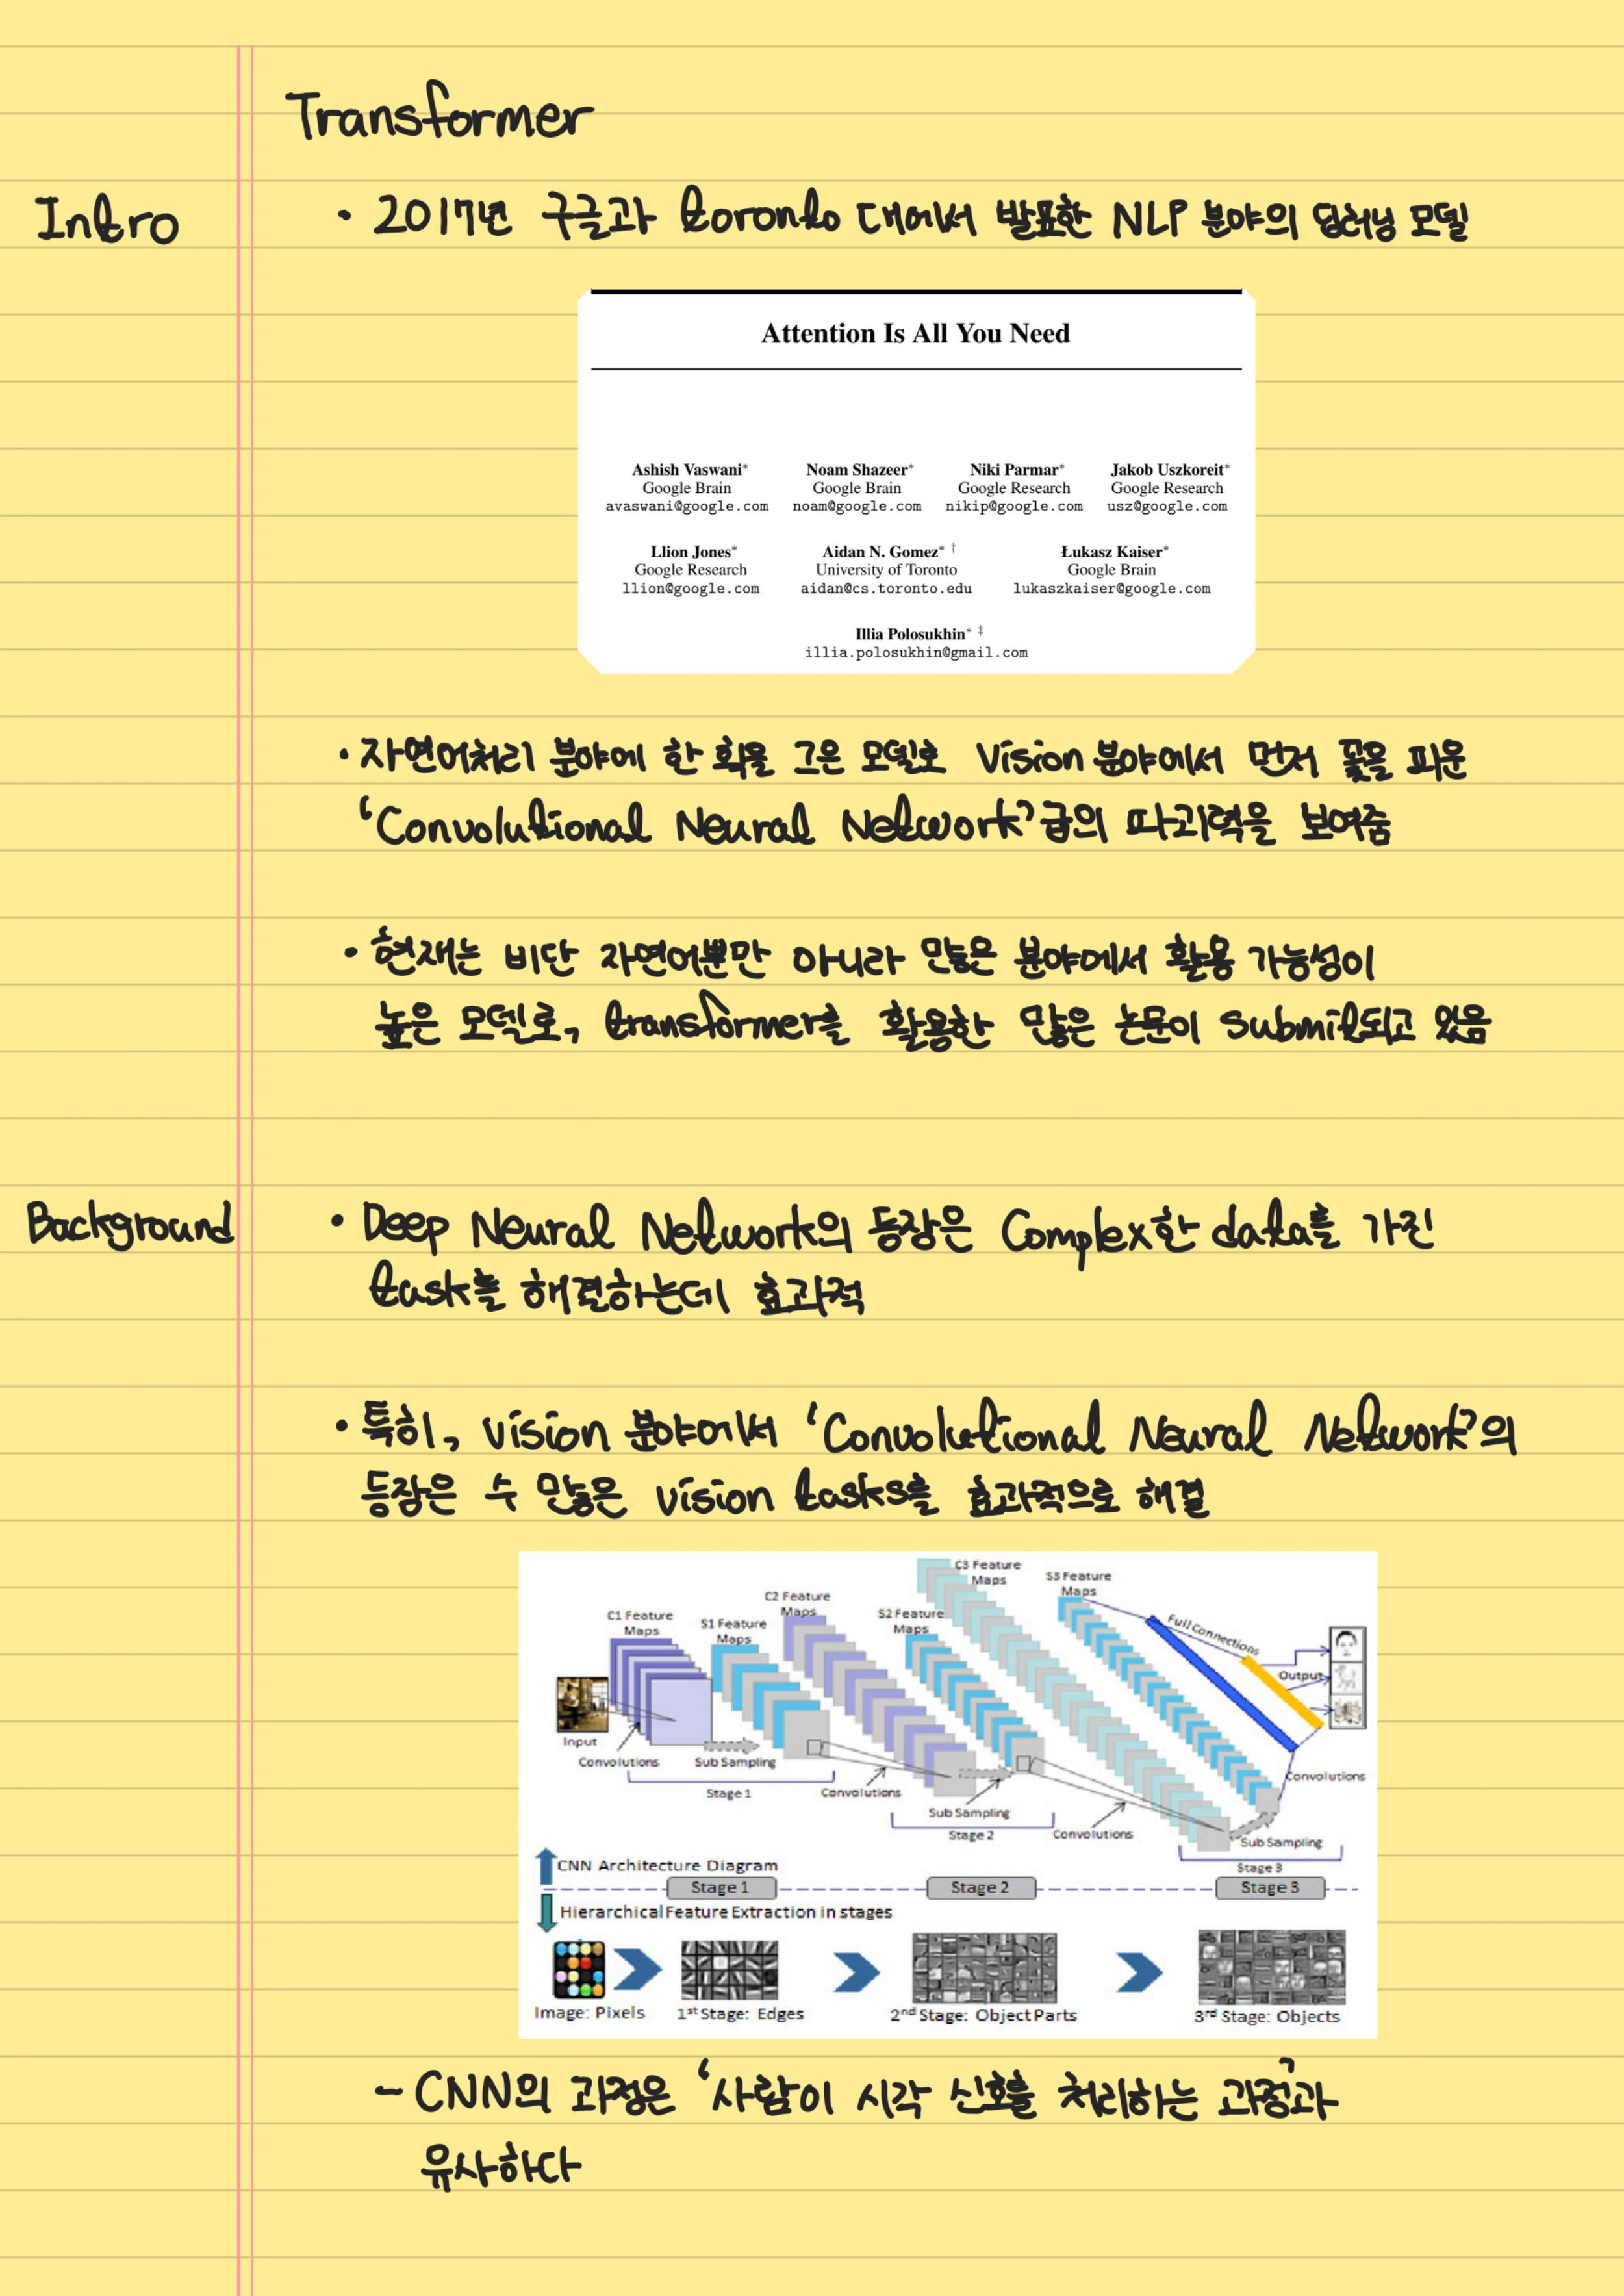 Transformer
Intro
• 2017년 구글과 toronto 대에서 발표한 NLP 분야의 딥러닝 모델
Attention Is All You Need
Ashish Vaswani* Noam Shazeer* Niki Parmar* Jakob Uszkoreit*
Google Brain Google Brain Google Research Google Research
avaswani@google.com noam@google.com nikip@google.com usz@google.com
Llion Jones* Aidan N. Gomez* † Łukasz Kaiser*
Google Research University of Toronto Google Brain
llion@google.com aidan@cs.toronto.edu lukaszkaiser@google.com
Illia Polosukhin* ‡
illia.polosukhin@gmail.com
• 자연어처리 분야에 한 획을 그은 모델로 Vision 분야에서 먼저 꽃을 피운
'Convolutional Neural Network'급의 파괴력을 보여줌
• 현재는 비단 자연어뿐만 아니라 많은 분야에서 활용 가능성이
높은 모델로, transformer를 활용한 많은 논문이 submit되고 있음
Background
• Deep Neural Network의 등장은 Complex한 data를 가진
task를 해결하는데 효과적
• 특히, vision 분야에서 'Convolutional Neural Network'의
등장은 수 많은 vision tasks를 효과적으로 해결
C1 Feature Maps
S1 Feature Maps
C2 Feature Maps
S2 Feature Maps
C3 Feature Maps
S3 Feature Maps
Full Connections
Output
Input
Convolutions
Sub Sampling
Stage 1
Convolutions
Sub Sampling
Stage 2
Convolutions
Sub Sampling
Stage 3
Convolutions
CNN Architecture Diagram
Stage 1 Stage 2 Stage 3
Hierarchical Feature Extraction in stages
Image: Pixels 1st Stage: Edges 2nd Stage: Object Parts 3rd Stage: Objects
- CNN의 과정은 '사람이 시각 신호를 처리하는 과정'과
유사하다